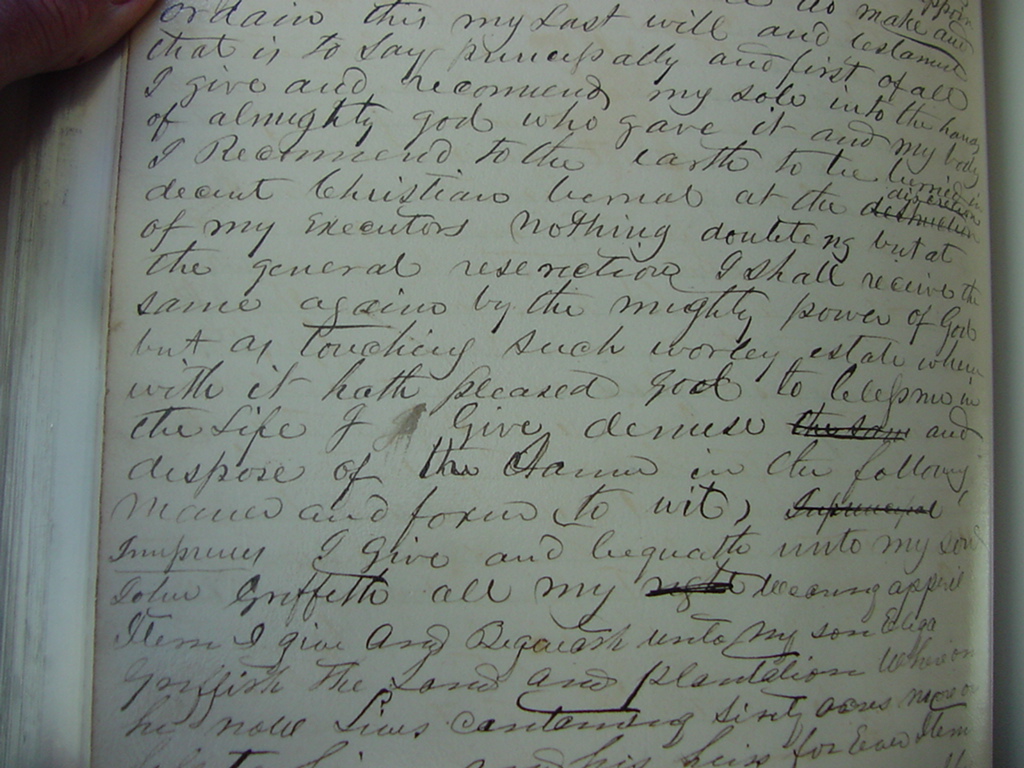 do make and
ordain this my Last will and testament
that is to Say principally and first of all
I give and recomend my sole into the hands
of almighty god who gave it and my body
I Recommend to the earth to be burried in
decent Christian berual at the destruction discretion
of my Executors nothing doubteng but at
the general reserection I shall receive the
same againe by the mighty power of God
but as touching such worley estate where
with it hath pleased god to blesse me in
the Life I Give demise the same and
dispose of the Same in the following
manner and form to wit,
Impremes I Give and bequath unto my son
John Griffith all my right wearing apperil
Item I give And Bequeath unto my son Eliga
Griffith the Land and plantation Whereon
he now Lives contanining Sixty acres more or
and his heirs for Ever Item